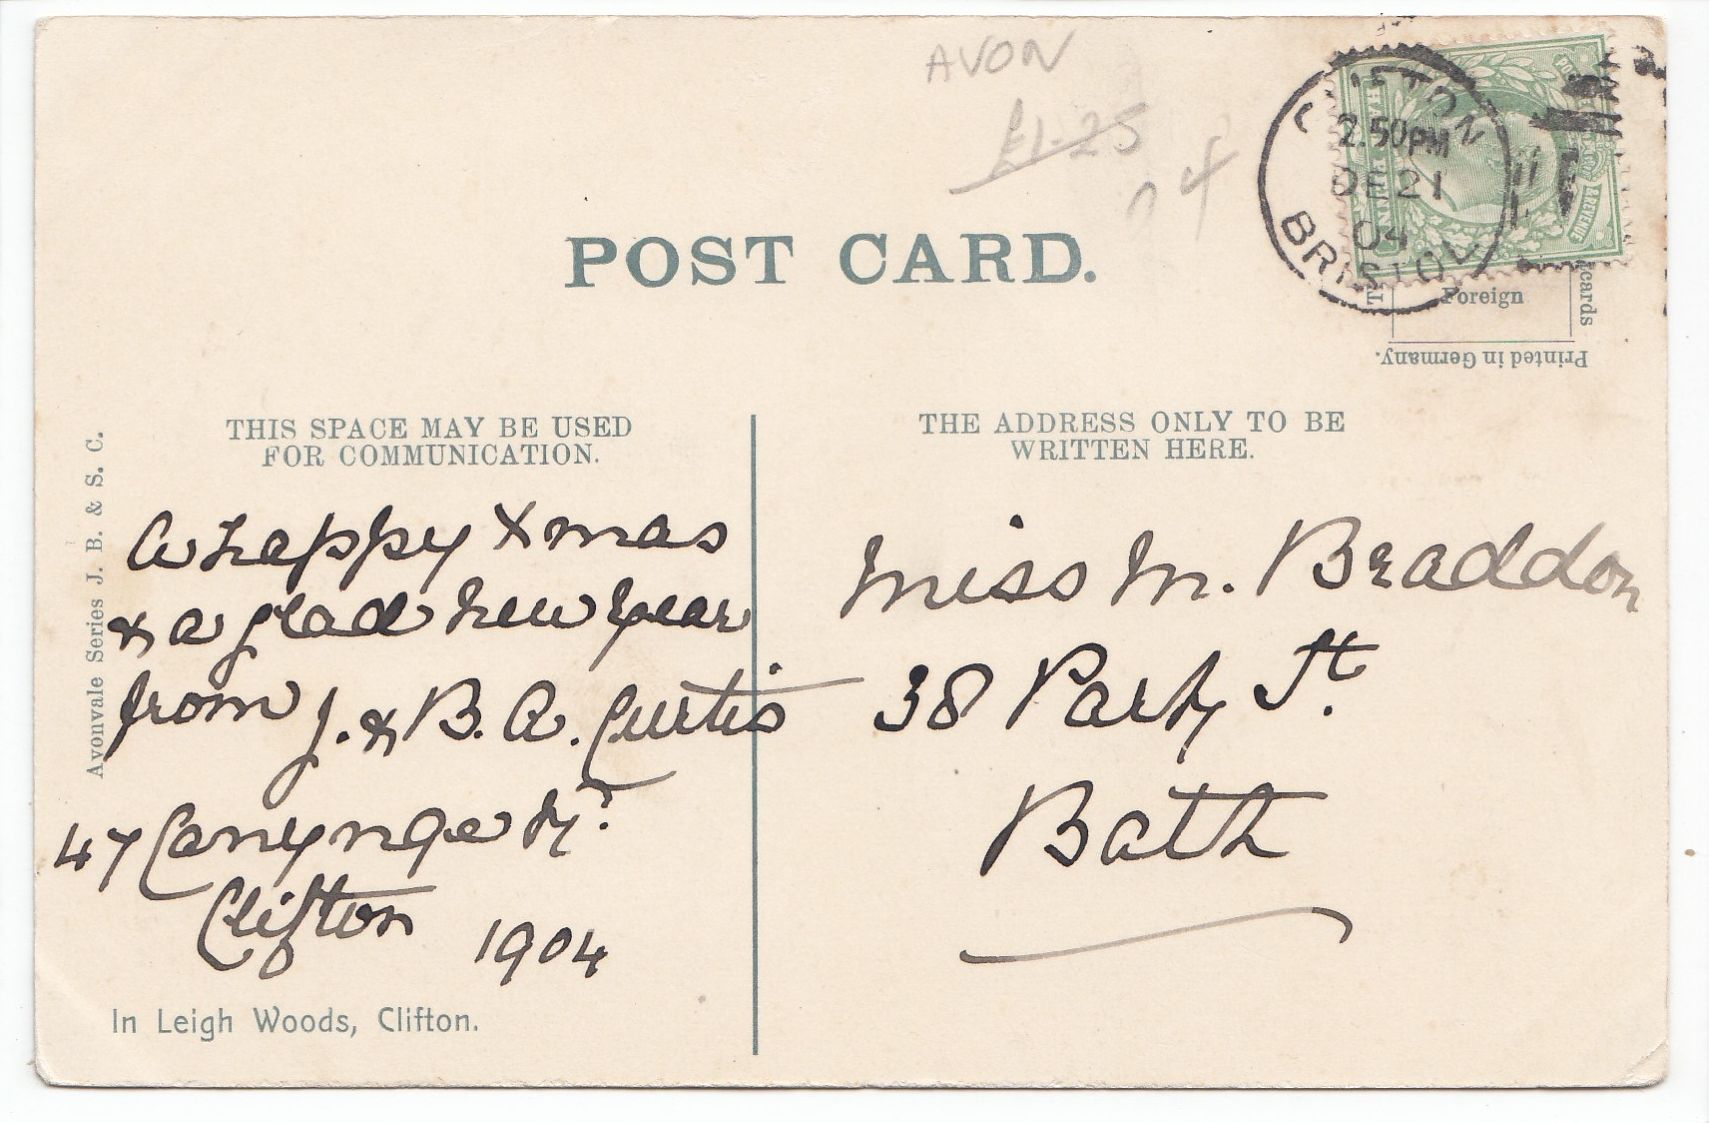 AVON
£1-25
POST CARD.
CLIFTON
2.50PM
DE21
04
BRISTOL
Foreign
cards
Printed in Germany.
THIS SPACE MAY BE USED
FOR COMMUNICATION.
THE ADDRESS ONLY TO BE
WRITTEN HERE.
Avonvale Series J. B. & S. C.
A happy Xmas
& a glad New Year
from J. & B. A. Curtis
47 Canynge
Clifton 1904
Miss M. Braddon
38 St.
Bath
In Leigh Woods, Clifton.